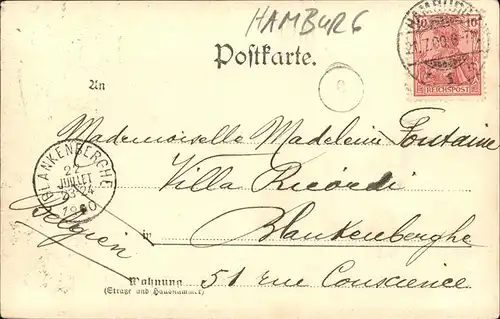 HAMBURG
Postkarte.
HAMBURG
10 10
REICHSPOST
An
Mademoiselle Madeleine Fontaine
Villa Ricordi
BLANKENBERGHE
22
JUILLET
1900
Belgien
in Blankenberghe
Wohnung 51 rue Conscience
(Straße und Hausnummer)